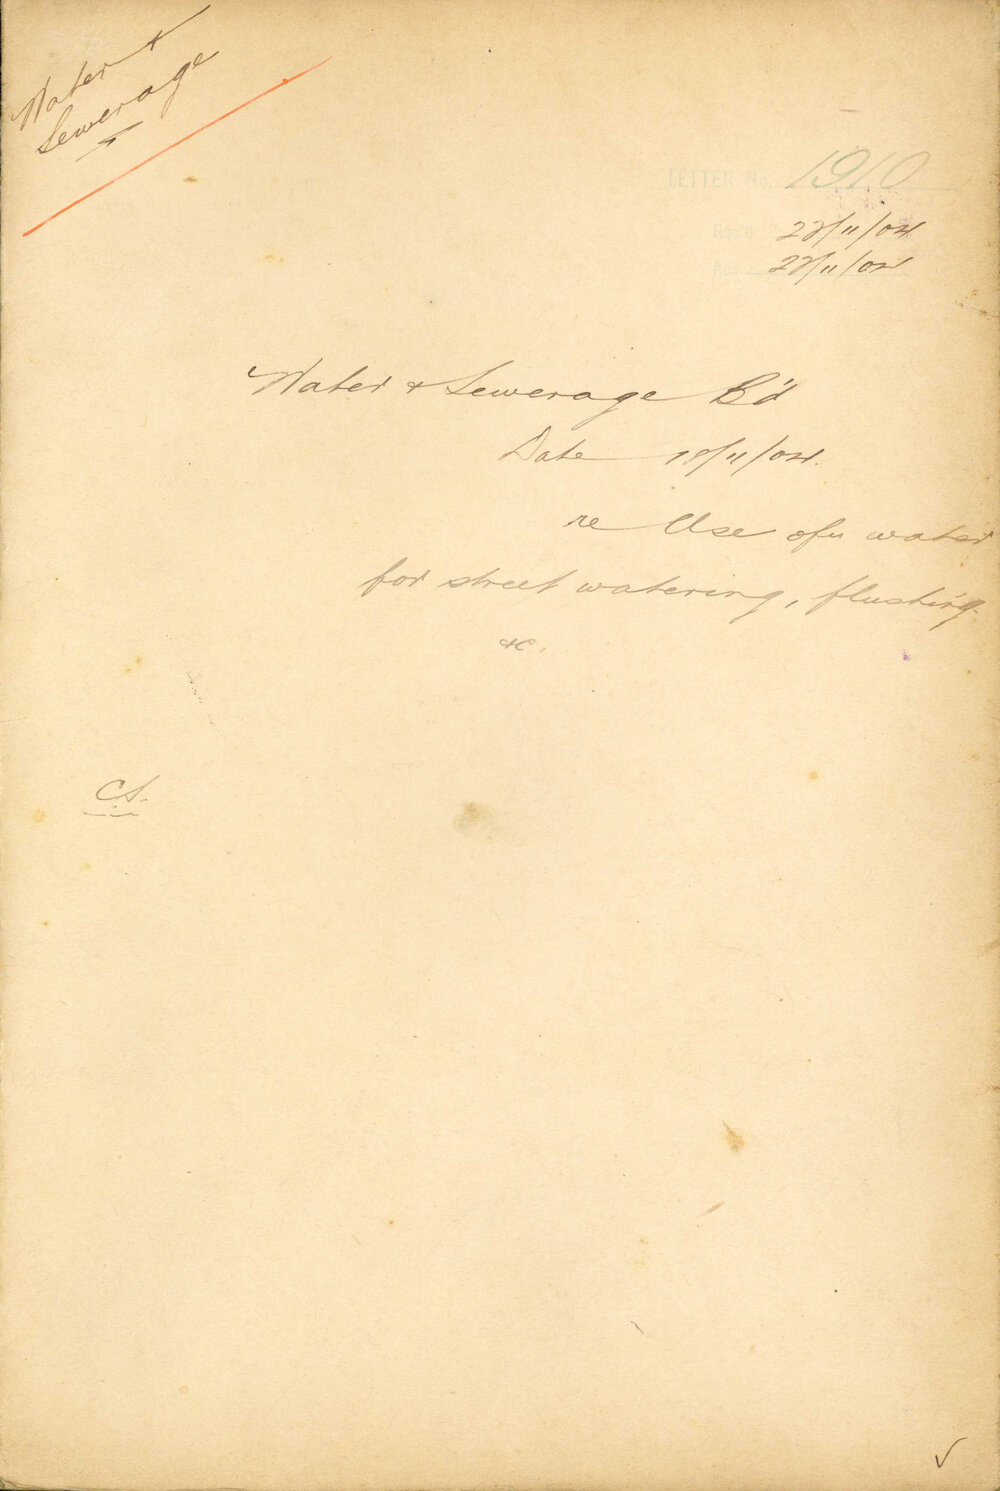 Water &
Sewerage
LETTER No. 1910
Rec'd 22/11/04
Ack 22/11/04
Water & Sewerage B'd
Date 18/11/04.
re Use of water
for street watering, flushing
&c.
CS.